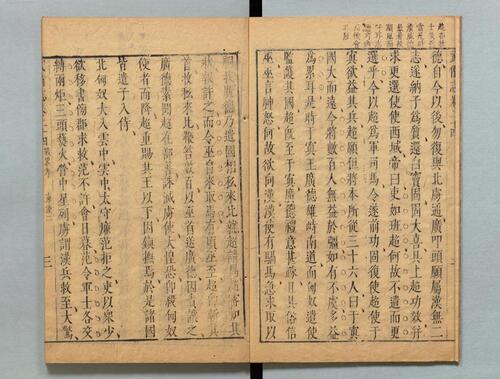 德自今以後勿復與北虜通廣叩頭願屬漢無二
志遂納子為質還白竇固固大喜具上超功效并
求更選使使西域帝曰吏如班超何故不遣而更
選乎今以超為軍司馬令遂前功固復使超使于
寘欲益其兵超願但將本所從三十六人曰于寘
國大而遠今將數百人無益於彊如有不虞多益
為累耳是時于寘王廣德雄時南道而匈奴遣使
監護其國超既至于寘廣德禮意甚疎且其俗信
巫巫言神怒何故欲向漢漢使有騧馬急來取以
祠我廣德乃遣國相私來比就超請馬超密知其
狀報許之而令巫自來取馬有頃巫至超即斬其
首收私來比鞭笞數百以巫首送廣德因責讓之
廣德素聞超在鄯善誅滅虜使大惶恐即殺匈奴
使者而降超重賜其王以下因鎮撫焉於是諸國
皆遣子入侍
北匈奴大入雲中雲中太守廉范拒之吏以眾少
欲移書傍郡求救范不許會日暮范令軍士各交
縛兩炬三頭爇火營中星列虜謂漢兵救至大驚